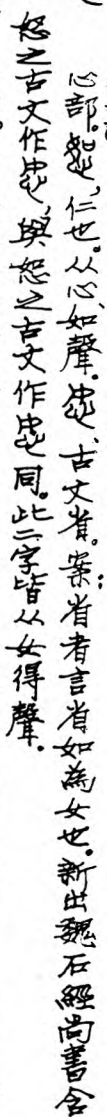 心部。恕，仁也。从心、如聲。㣽、古文省。案：省者言省如為女也。新出魏石經尚書含
怒之古文作㣽，與恕之古文作㣽同。此二字皆从女得聲。